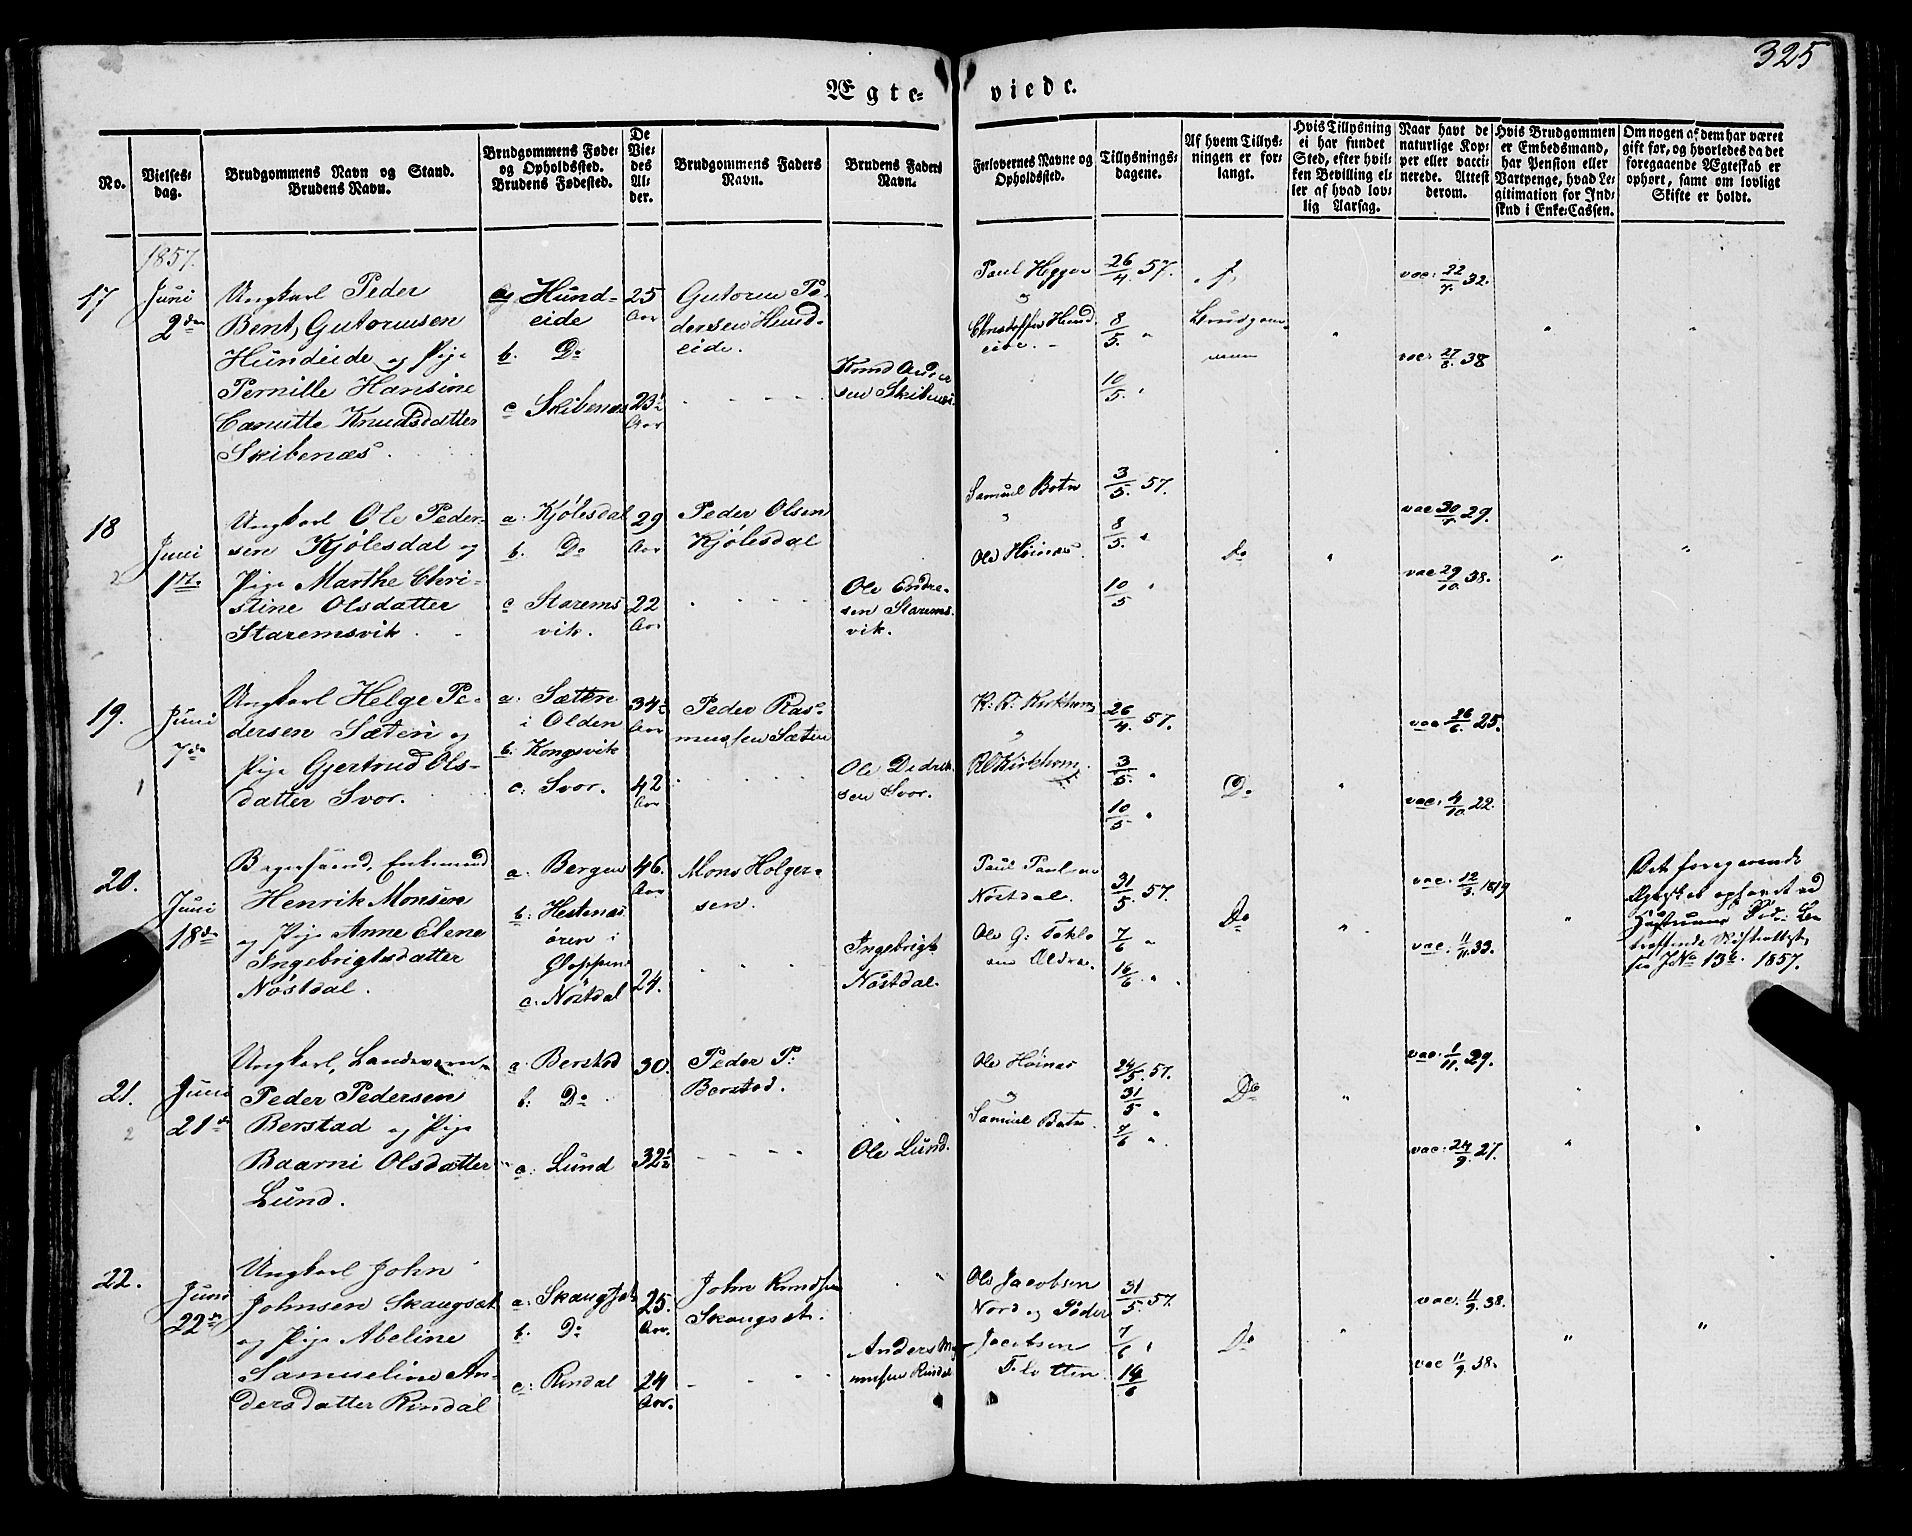 325
Ægteviede.
No.
Vielses-
dag.
Brudgommens Navn og Stand.
Brudens Navn.
Brudgommens Føde-
og Opholdssted.
Brudens Fødested.
De
Vie-
des
Al-
der.
Brudgommens Faders
Navn.
Brudens Faders
Navn.
Forlovernes Navne og
Opholdssted.
Tillysnings-
dagene.
Af hvem Tillys-
ningen er for-
langt.
Hvis Tillysning
ei har fundet
Sted, efter hvil-
ken Bevilling el-
ler af hvad lov-
lig Aarsag.
Naar havt de
naturlige Kop-
per eller vacci-
nerede. Attest
derom.
Hvis Brudgommen
er Embedsmand,
har Pension eller
Vartpenge, hvad Le-
gitimation for Ind-
skud i Enke-Cassen.
Om nogen af dem har været
gift før, og hvorledes da det
foregaaende Ægteskab er
ophørt, samt om lovligt
Skifte er holdt.
1857.
17
Juni
2den
Ungkarl Peder
Bent, Gutormsen
Hundeide og Pige
Pernille Hansine
Canutte Knudsdatter
Skibenæs.
a. Hund-
eide
b. Do
c Skibenæs
25
Aar
23½
Aar
Gutorm Pe-
dersen Hund-
eide.
Knud Ander
sen Skibenæs.
Paul Heggen
og
Christoffer Hund-
eide.
26/4 57.
8/5. "
10/5. "
af
Brudgom-
men
vac: 22/7. 32.
vac: 27/8. 38
18
Juni
1ste
2
Ungkarl Ole Peder-
sen Kjølesdal og
Pige Marthe Chri-
stine Olsdatter
Staremsvik.
a. Kjølesdal
b. Do
c Starems
vik.
29
Aar
22
Aar
Peder Olsen
Kjølesdal
Ole Endre-
sen Starems-
vik.
Samuel Botn
og
Ole Høinæs.
3/5. 57.
8/5. "
10/5 "
Do
vac 30/7 29.
vac 29/10. 38.
19.
Juni
7de
1
Ungkarl Helge Pe-
dersen Sæten og
Pige Gjertrud Ols-
datter Svor.
a. Sæten
i Olden
b. Kongsvik
c. Svor.
34½
Aar
42
Aar
Peder Ras-
mussen Sæten
Ole Didrik-
sen Svor.
R: R: Kirkhorn
og
R O Kirkhorn
26/4. 57.
3/5. "
10/5 "
Do
vac 26/6. 25.
vac: 4/10. 22.
20.
Juni
18de
Enkemand
Henrik Monsen
og Pige Anne Elene
Ingebrigtsdatter
Nøstdal.
a. Bergen
b. Hestenæs
øren i
Gloppen
c. Nøstdal
46.
Aar
24.
Mons Holger-
sen.
Ingebrigt
Nøstdal.
Paul Paulsen
Nøstdal.
Ole G:
31/5 57.
7/6 "
14/6 "
Do
vac: 12/3. 1819
vac: 11/11. 33.
Det foregaaende
Ægtesk: ophævet ved
Hustruens Død. Be
træffende
see J No 136. 1857.
21.
Juni
21de
2
Ungkarl, Landværn
Peder Pedersen
Berstad og Pige
Baarni Olsdatter
Lund.
a. Berstad
b: Do
c. Lund
30.
32½
Peder P:
Berstad.
Ole Lund.
Ole Høinæs
og
Samuel Botn.
24/5. 57.
31/5 "
7/6 "
Do
vac: 1/11. 29.
vac: 24/9. 27.
22.
Juni
22de
Ungkarl John
Johnsen Skaugsæt
og Pige Abeline
Samueline An-
dersdatter Rindal
a. Skaugsæt
b. Do
c: Rindal
25.
Aar.
24
Aar.
John Knudsen
Skaugsæt.
Anders Mag
nusen Rindal
Ole Jacobsen
Nord og Peder
Jacobsen
Flotten.
31/5. 57.
7/6 "
14/6
Do
vac. 11/9. 38.
vac 11/9. 38.